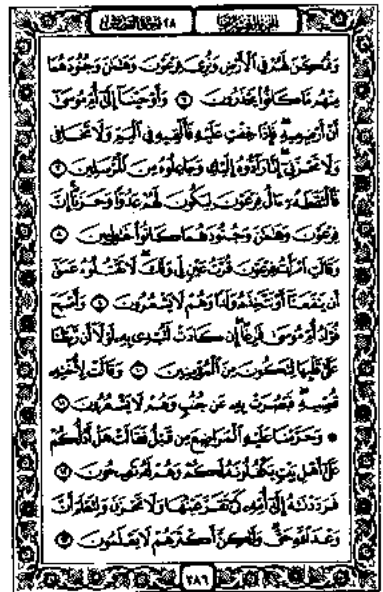 الجزء العشرون ٢٨ سورة القصص
وَنُمَكِّنَ لَهُمْ فِي ٱلْأَرْضِ وَنُرِيَ فِرْعَوْنَ وَهَٰمَٰنَ وَجُنُودَهُمَا
مِنْهُم مَّا كَانُوا۟ يَحْذَرُونَ ۝٦ وَأَوْحَيْنَآ إِلَىٰٓ أُمِّ مُوسَىٰٓ
أَنْ أَرْضِعِيهِ ۖ فَإِذَا خِفْتِ عَلَيْهِ فَأَلْقِيهِ فِي ٱلْيَمِّ وَلَا تَخَافِي
وَلَا تَحْزَنِيٓ ۖ إِنَّا رَآدُّوهُ إِلَيْكِ وَجَاعِلُوهُ مِنَ ٱلْمُرْسَلِينَ ۝٧
فَٱلْتَقَطَهُۥٓ ءَالُ فِرْعَوْنَ لِيَكُونَ لَهُمْ عَدُوًّا وَحَزَنًا ۗ إِنَّ
فِرْعَوْنَ وَهَٰمَٰنَ وَجُنُودَهُمَا كَانُوا۟ خَٰطِـِٔينَ ۝٨
وَقَالَتِ ٱمْرَأَتُ فِرْعَوْنَ قُرَّتُ عَيْنٍ لِّي وَلَكَ ۖ لَا تَقْتُلُوهُ عَسَىٰٓ
أَن يَنفَعَنَآ أَوْ نَتَّخِذَهُۥ وَلَدًا وَهُمْ لَا يَشْعُرُونَ ۝٩ وَأَصْبَحَ
فُؤَادُ أُمِّ مُوسَىٰ فَٰرِغًا ۖ إِن كَادَتْ لَتُبْدِي بِهِۦ لَوْلَآ أَن رَّبَطْنَا
عَلَىٰ قَلْبِهَا لِتَكُونَ مِنَ ٱلْمُؤْمِنِينَ ۝١٠ وَقَالَتْ لِأُخْتِهِۦ
قُصِّيهِ ۖ فَبَصُرَتْ بِهِۦ عَن جُنُبٍ وَهُمْ لَا يَشْعُرُونَ ۝١١
۞ وَحَرَّمْنَا عَلَيْهِ ٱلْمَرَاضِعَ مِن قَبْلُ فَقَالَتْ هَلْ أَدُلُّكُمْ
عَلَىٰٓ أَهْلِ بَيْتٍ يَكْفُلُونَهُۥ لَكُمْ وَهُمْ لَهُۥ نَٰصِحُونَ ۝١٢
فَرَدَدْنَٰهُ إِلَىٰٓ أُمِّهِۦ كَيْ تَقَرَّ عَيْنُهَا وَلَا تَحْزَنَ وَلِتَعْلَمَ أَنَّ
وَعْدَ ٱللَّهِ حَقٌّ وَلَٰكِنَّ أَكْثَرَهُمْ لَا يَعْلَمُونَ ۝١٣
٣٨٦